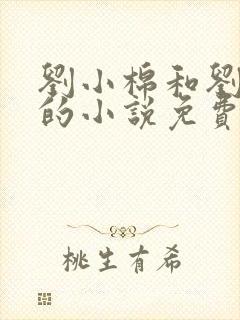 劉小棉和劉
的小說免費
桃生有希